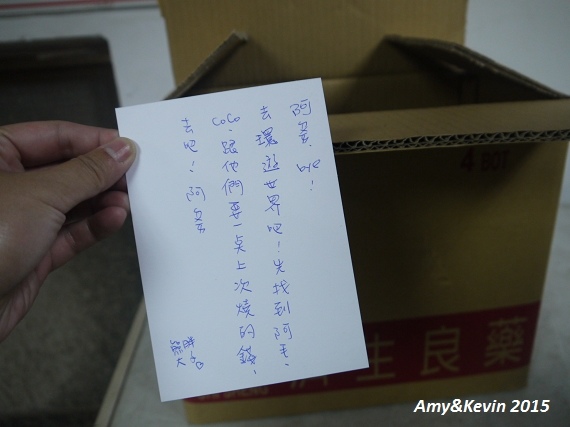 阿 bye!
去環遊世界吧!先找到阿毛、
CoCo,跟他們要一桌上次燒的錢!
去吧!阿
熊胖
大
4 BOT.
濟生良藥
Amy&Kevin 2015